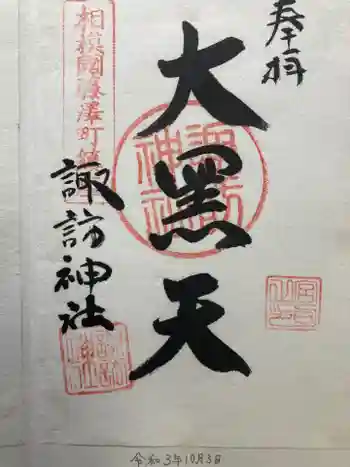 奉拝
大黒天
諏訪神社
相模國藤澤町鎮
諏訪神社
令和3年10月3日